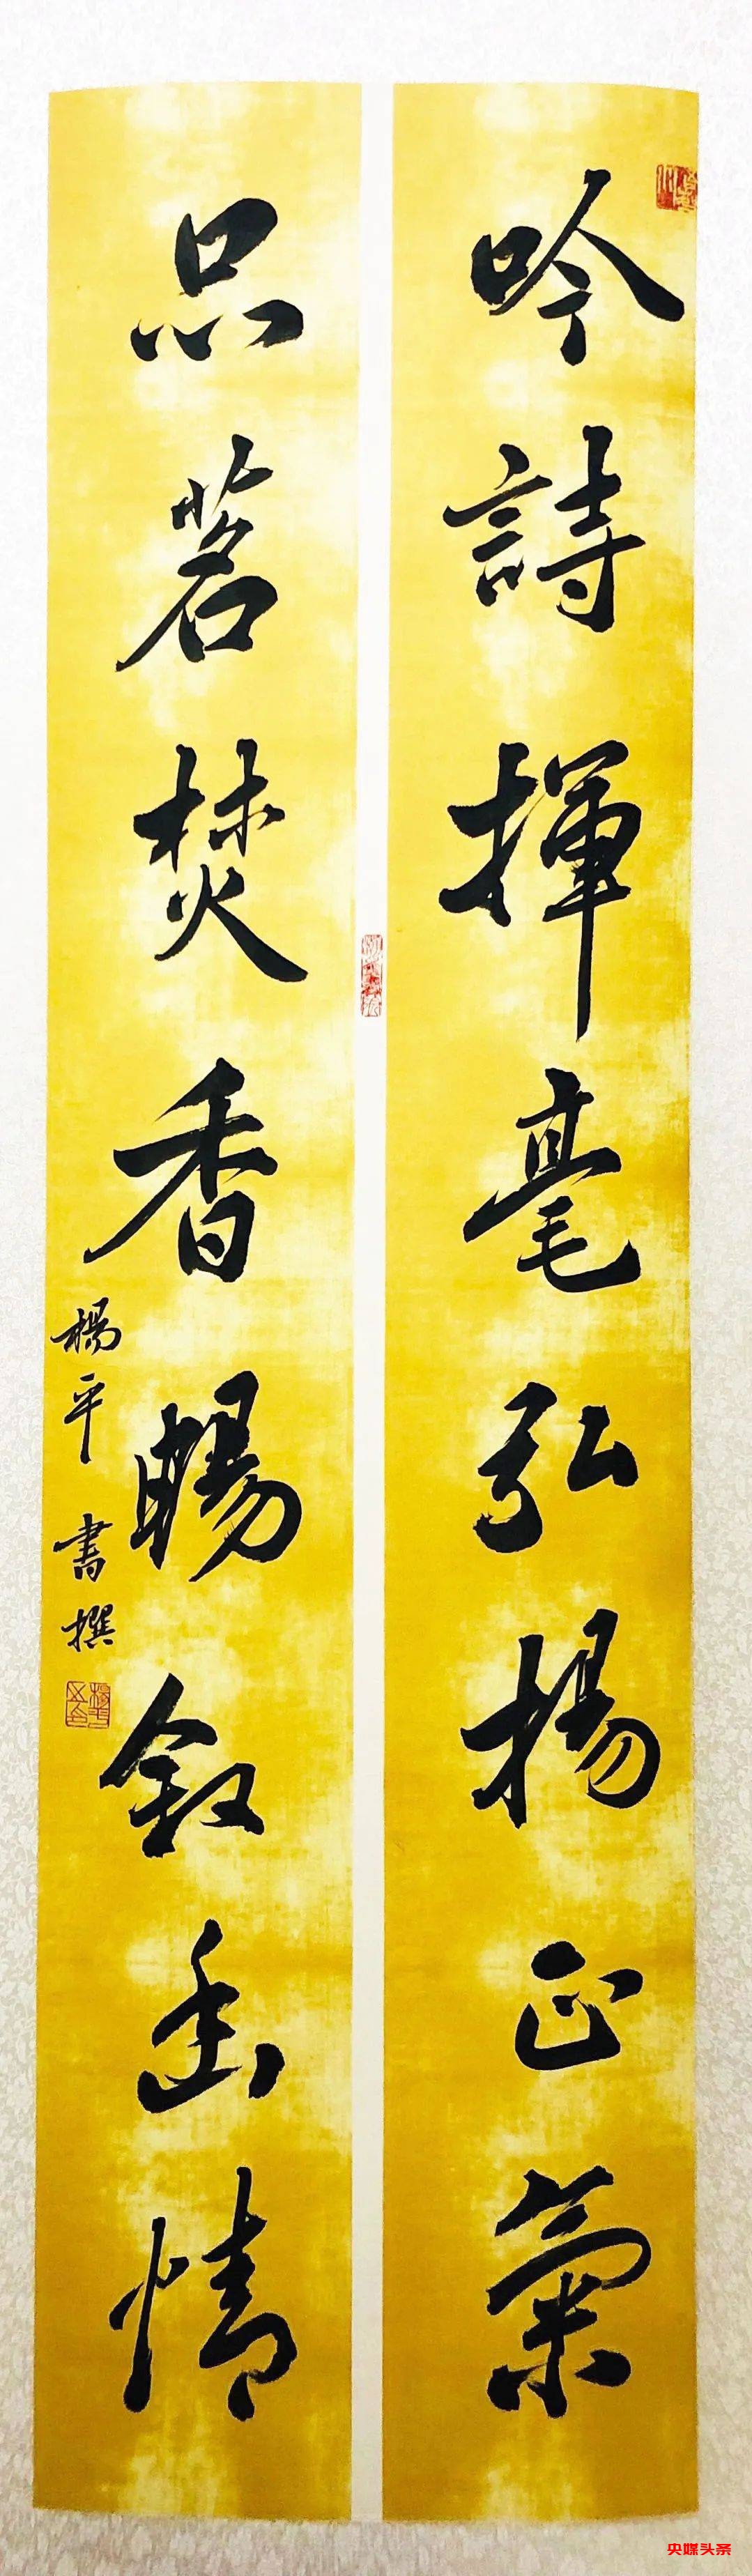 吟詩揮毫弘揚正氣
品茗焚香暢敘幽情
楊平 書撰
央媒头条